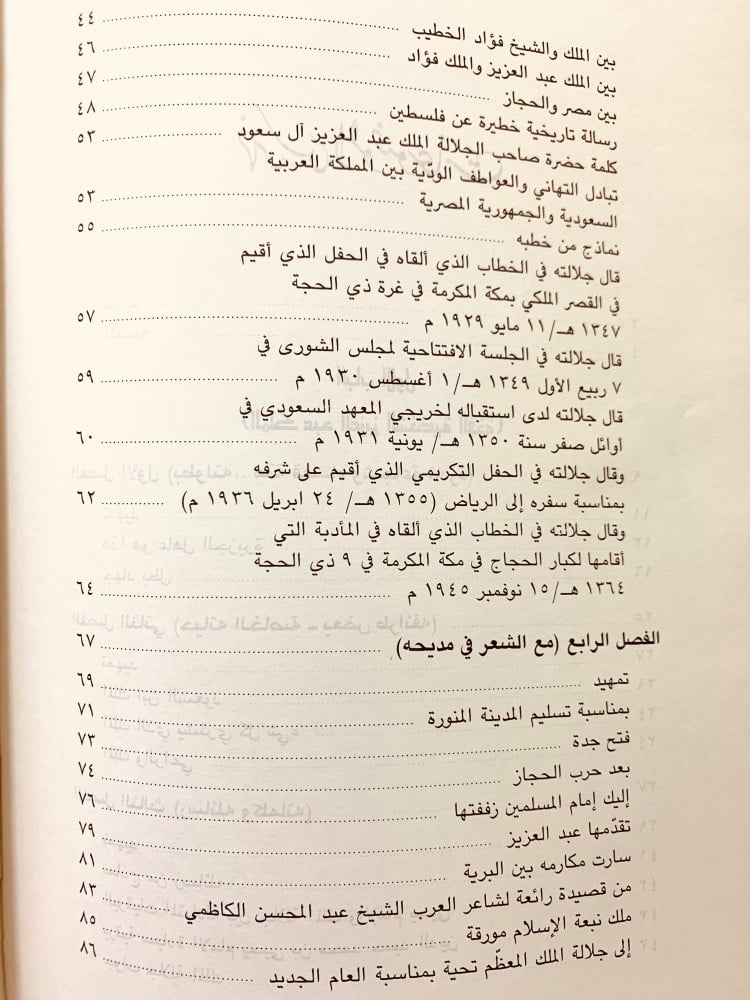 بين الملك والشيخ فؤاد الخطيب ٤٤
بين الملك عبد العزيز والملك فؤاد ٤٦
بين مصر والحجاز ٤٧
رسالة تاريخية خطيرة عن فلسطين ٤٨
كلمة حضرة صاحب الجلالة الملك عبد العزيز آل سعود ٥٣
تبادل التهاني والعواطف الودّية بين المملكة العربية
السعودية والجمهورية المصرية ٥٣
نماذج من خطبه ٥٥
قال جلالته في الخطاب الذي ألقاه في الحفل الذي أقيم
في القصر الملكي بمكة المكرمة في غرة ذي الحجة
١٣٤٧ هـ/١١ مايو ١٩٢٩ م ٥٧
قال جلالته في الجلسة الافتتاحية لمجلس الشورى في
٧ ربيع الأول ١٣٤٩ هـ/١ أغسطس ١٩٣٠ م ٥٩
قال جلالته لدى استقباله لخريجي المعهد السعودي في
أوائل صفر سنة ١٣٥٠ هـ/ يونية ١٩٣١ م ٦٠
وقال جلالته في الحفل التكريمي الذي أقيم على شرفه
بمناسبة سفره إلى الرياض (١٣٥٥ هـ/ ٢٤ ابريل ١٩٣٦ م) ٦٢
وقال جلالته في الخطاب الذي ألقاه في المأدبة التي
أقامها لكبار الحجاج في مكة المكرمة في ٩ ذي الحجة
١٣٦٤ هـ/١٥ نوفمبر ١٩٤٥ م ٦٤
الفصل الرابع (مع الشعر في مديحه) ٦٧
تمهيد ٦٩
بمناسبة تسليم المدينة المنورة ٧١
فتح جدة ٧٣
بعد حرب الحجاز ٧٤
إليك إمام المسلمين زففتها ٧٦
تقدّمها عبد العزيز ٧٩
سارت مكارمه بين البرية ٨١
من قصيدة رائعة لشاعر العرب الشيخ عبد المحسن الكاظمي ٨٣
ملك نبعة الإسلام مورقة ٨٥
إلى جلالة الملك المعظّم تحية بمناسبة العام الجديد ٨٦